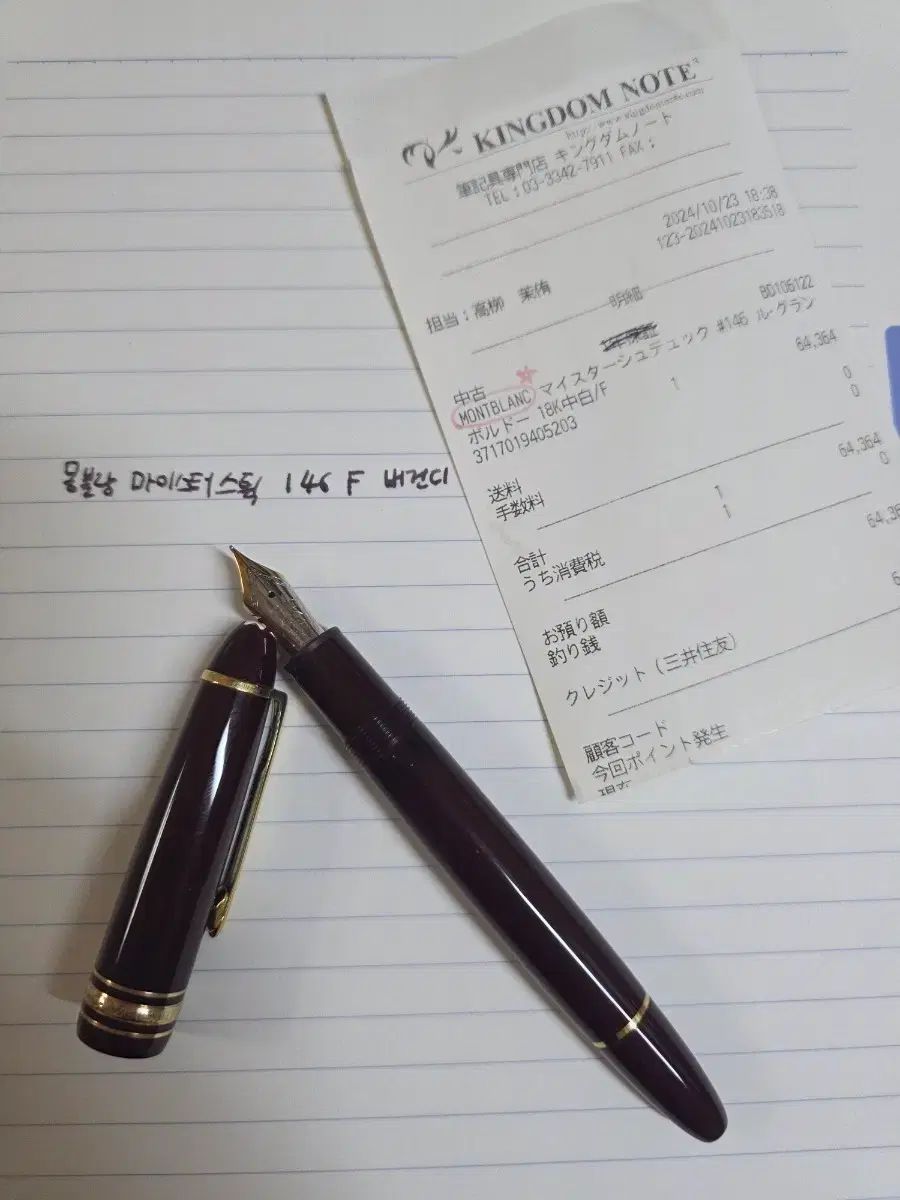 KINGDOM NOTE
http://www.kingdomnote.com
筆記具専門店 キングダムノート
TEL:03-3342-7911 FAX:
2024/10/23 18:38
123-20241023183518
担当:高柳
明細
BD106122
中古
MONTBLANC マイスターシュテュック #146 ル・グラン
ボルドー 18K中白/F 1 64,364
3717019405203 0
0
送料
手数料
64,364
0
合計 1
うち消費税 1
お預り額
釣り銭
クレジット(三井住友)
顧客コード
今回ポイント発生
몽블랑 마이스터스튁 146 F 버건디